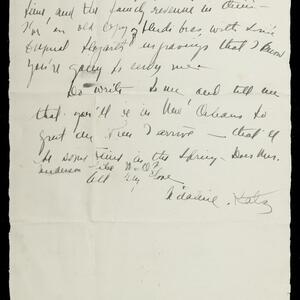 time, and the family revenue in
For an old copy of Hudibras, with
original Hogarth engravings that I know
you're going to envy me.
Do write to me and tell me
that you'll be in New Orleans to
greet me when I arrive - that'll
be some time in the Spring. Does Mrs.
Anderson like N.O.?
All my love
Adaline Katz